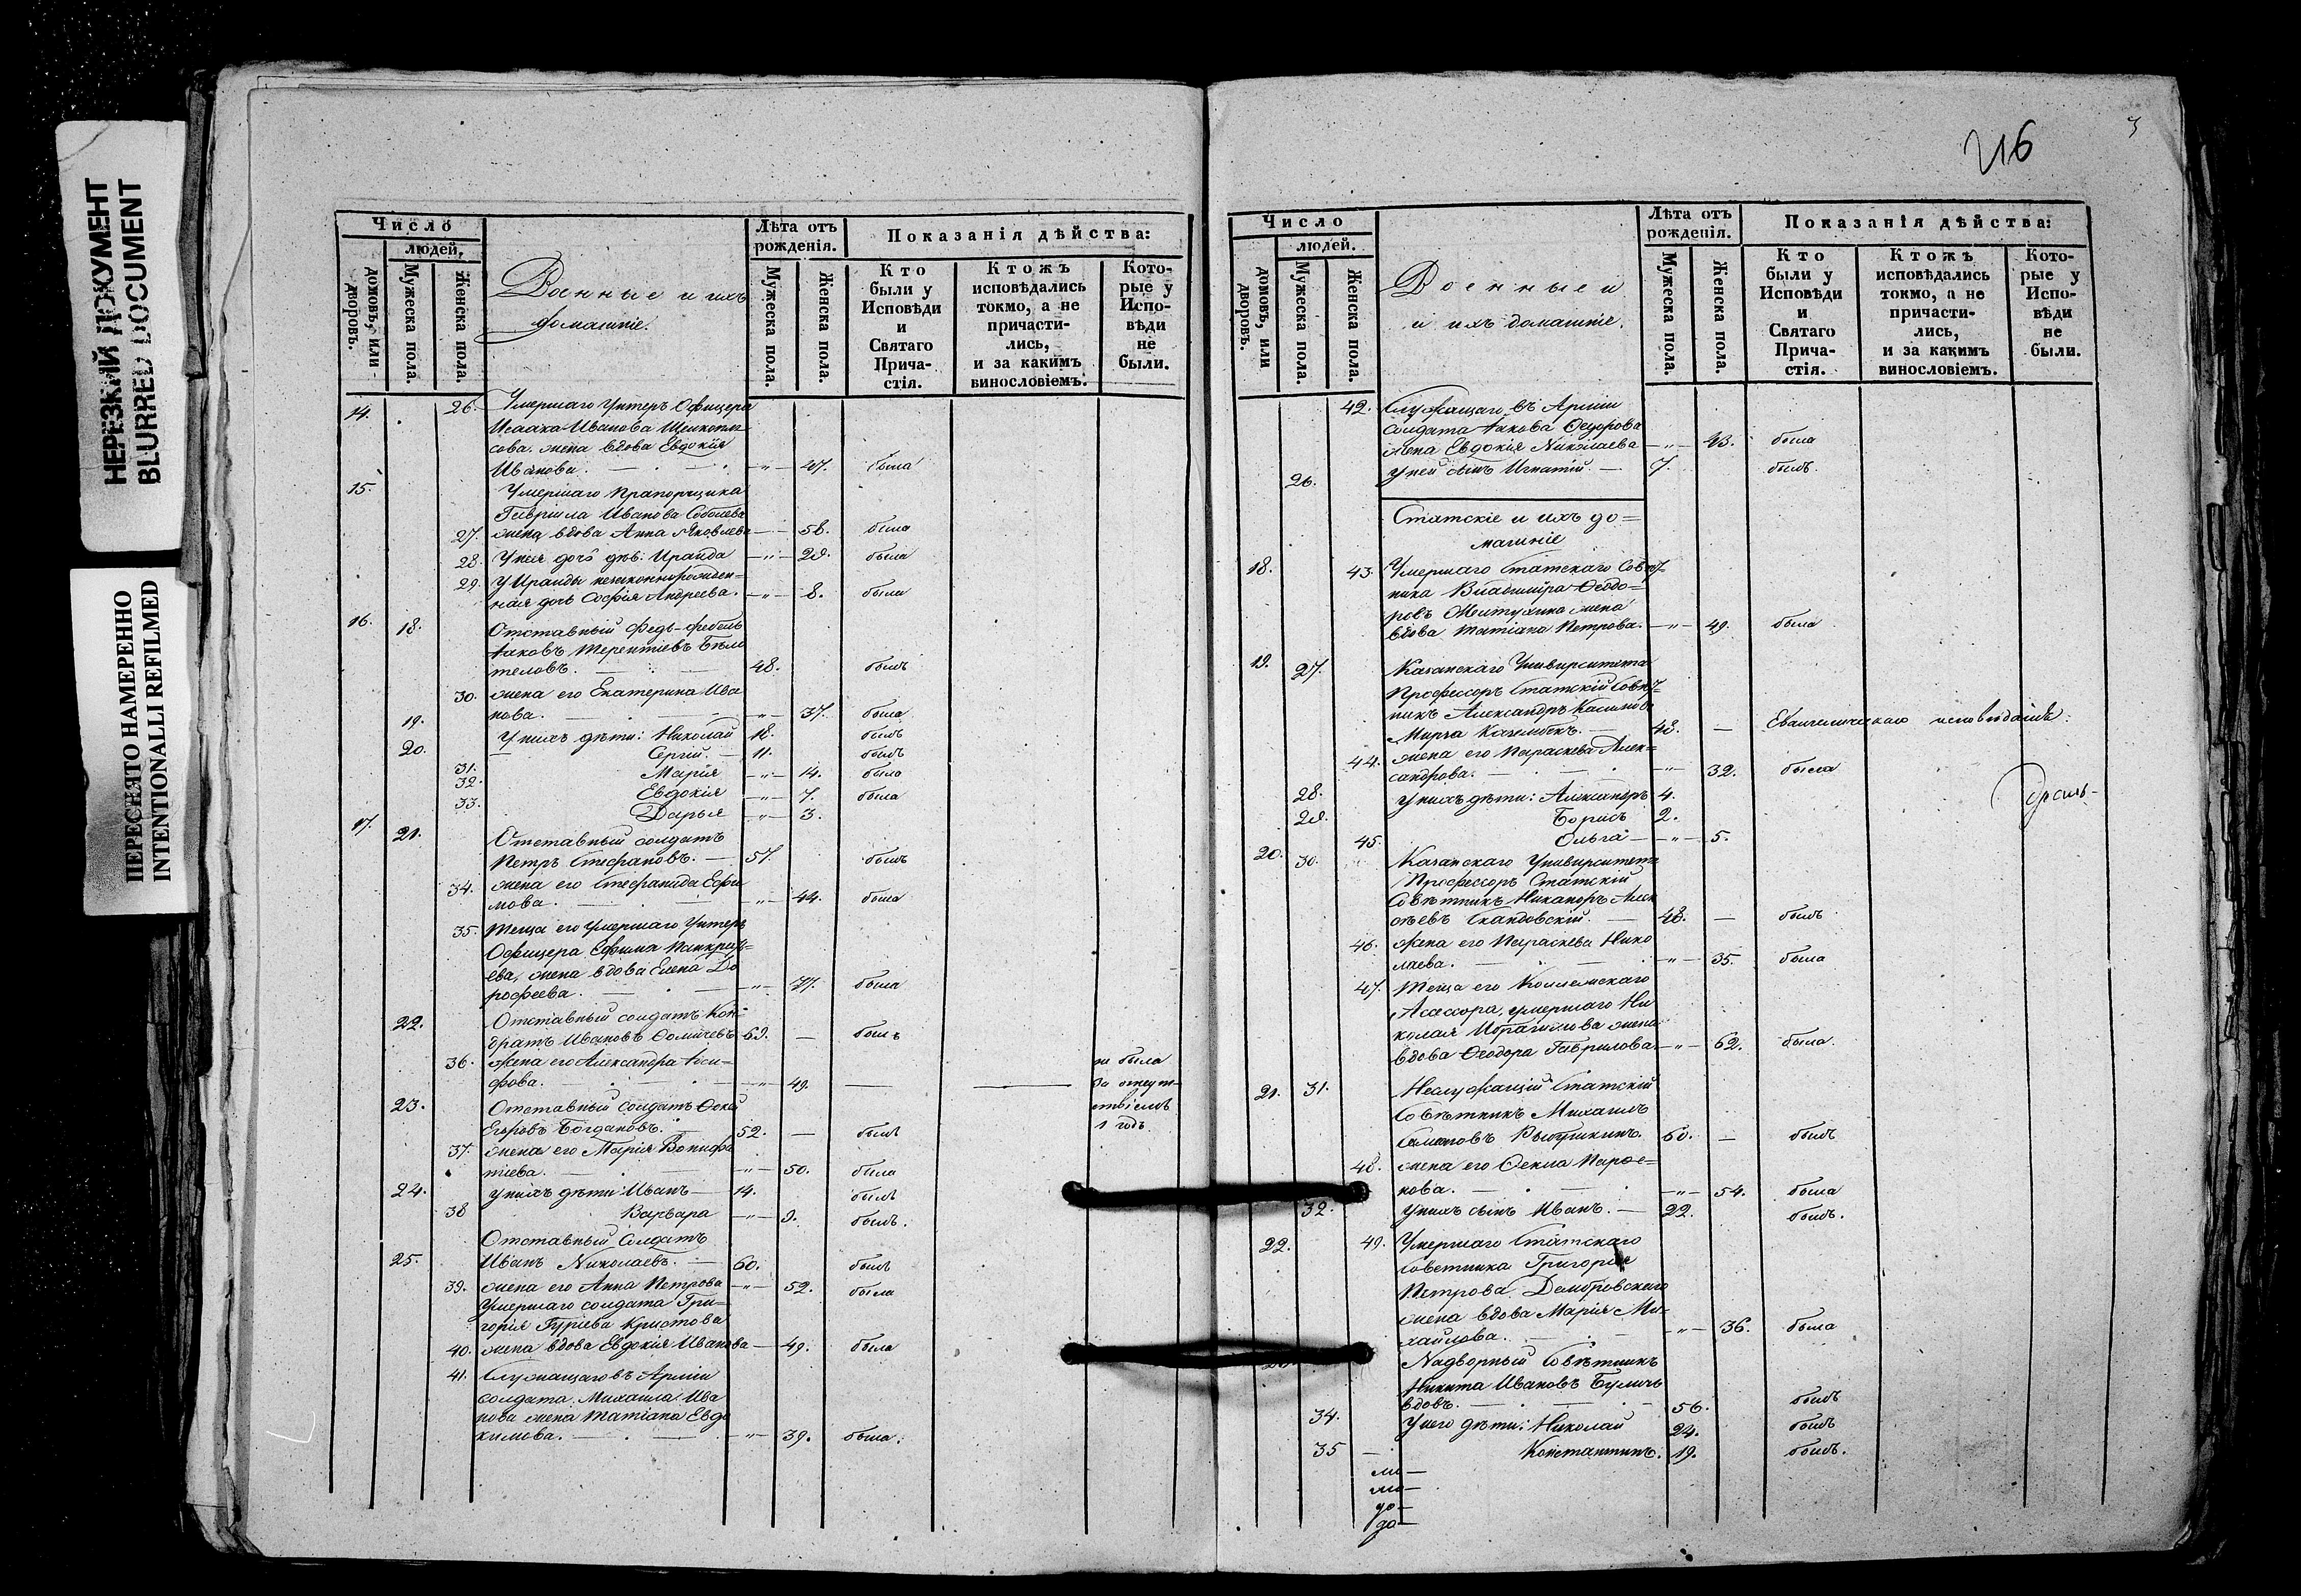 НЕРЕЗКИЙ ДОКУМЕНТ
BLURRED DOCUMENT
ПЕРЕСНЯТО НАМЕРЕННО
INTENTIONALLI REFILMED
Число
людей,
домовъ, или дворовъ.
Мужеска пола.
Женска пола.
Военные и ихъ
домашніе.
Лѣта отъ
рожденія.
Мужеска пола.
Женска пола.
Показанія дѣйства:
Кто
были у
Исповѣди
и
Святаго
Прича-
стія.
Ктожъ
исповѣдались
токмо, а не
причасти-
лись,
и за какимъ
винословіемъ.
Кото-
рые у
Испо-
вѣди
не
были.
14. 26. Умершаго Унтеръ Офицера
Исаака Иванова
сова. жена вдова Евдокія
Иванова. — " — 47. была
15. Умершаго Прапорщика
Гавріила Иванова Соболева
27. жена вдова Анна Яковлева — 58. была
28. У нея дочь дѣв: Ираида — " — 28. была
29. У Ираиды незаконнорожден=
ная дочь Софія Андреева. — " — 8. была
16. 18. Отставный Федь-фебель
Іаковъ Терентіевъ Бѣло
теловъ. — 48. былъ
30. жена его Екатерина Ива
нова. — " — 37. была
19. У нихъ дѣти: Николай 18. былъ
20. — Сергій. — 11. былъ
31. Марія — " — 14. была
32. Евдокія — " — 7. была
33. Дарья — " — 3.
17. 21. Отставный солдатъ
Петръ Стефановъ. — 57. былъ
34. жена его Стефанида Ефи
мова. — " — 44. была
35. Теща его умершаго Унтеръ
Офицера Ефима Панкрать=
ева, жена вдова Елена До
рофеева. — " — 77. была
22. Отставный солдатъ Кон=
дратъ Ивановъ Ѳомичевъ 69. — былъ
36. жена его Александра Іоси=
фова. — " — 49. — не была
за отсут-
ствіемъ
1 годъ.
23. Отставный солдатъ Ѳока
Егоровъ Богдановъ. — 52. — былъ
37. жена его Марія Вонифа
тіева. — " — 50. была
24. у нихъ дѣти: Иванъ — 14. былъ
38 Варвара — " — 9. былъ.
Отставный Солдатъ
25. Иванъ Николаевъ. — 60. былъ
39. жена его Анна Петрова — " — 52. была
Умершаго солдата Гри=
горія Гуріева Кристова
40. жена вдова Евдокія Иванова — 49. была
41. Служащаго въ Арміи
солдата Михаила Ива
нова жена Татіана Евдо
кимова. — " — 39. была.
216
3
Число
людей.
домовъ, или дворовъ.
Мужеска пола.
Женска пола.
Военные и
и ихъ домашніе.
Лѣта отъ
рожденія.
Мужеска пола.
Женска пола.
Показанія дѣйства:
Кто
были у
Исповѣди
и
Святаго
Прича-
стія.
Ктожъ
исповѣдались
токмо, а не
причасти-
лись,
и за какимъ
винословіемъ.
Кото-
рые у
Испо-
вѣди
не
были.
42. Служащаго въ Арміи
солдата Іакова Ѳедорова
жена Евдокія Николаева — " — 43. была
26. у ней сынъ Игнатій. — 7. былъ
Статскіе и ихъ до=
машніе
18. 43. Умершаго Статскаго Совѣт=
ника Владиміра Ѳеодо=
ровъ жена
вдова Татіана Петрова. — " — 49. была
19. 27. Казанскаго Университета
Профессоръ Статскій Совѣт=
никъ Александръ Касимов
Мирза Каземъбекъ. — 48. — Евангелическаго исповѣданія.
44. жена его Параскева Алек=
сандрова. — " — 32. была
28. у нихъ дѣти: Александръ 4.
29. Борисъ 2.
45. Ольга — " — 5.
20. 30. Казанскаго Университета
Профессоръ Статскій
Совѣтникъ Никаноръ Алек
сѣевъ Скандовскій. — 48. — былъ
46. жена его Параскева Нико
лаева. — " — 35. была
47. Теща его Коллежскаго
Асессора, умершаго Ни
колая Ибрагимова жена
вдова Ѳеодора Гаврилова. — " — 62. была.
21. 31. Неслужащій Статскій
Совѣтникъ Михаилъ
Самсоновъ Рыбушкинъ. 60. — былъ
48. жена его Ѳекла Парѳе=
нова. — " — 54. была
32. у нихъ сынъ Иванъ. — 22. былъ.
22. 49. Умершаго Статскаго
Советника Григорія
Петрова Домбровскаго
жена вдова Марія Ми=
хайлова. — " — 36. была
Надворный Совѣтникъ
Никита Ивановъ Буличъ
вдовъ. — 56. былъ
34. У него дѣти: Николай 24. былъ
35 — Константинъ. 19. былъ.